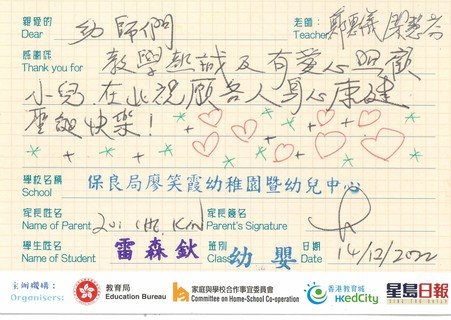 親愛的 老師：
Dear 幼師們 Teacher 鄭惠儀 梁慧芬
感謝您
Thank you for 教學熱誠及有愛心照顧
小兒，在此祝願各人身心康健
歷盡快樂！
學校名稱
School 保良局廖笑霞幼稚園暨幼兒中心
家長姓名 家長簽名
Name of Parent Lui CHE KIN Parent's Signature
學生姓名 班別 日期
Name of Student 雷森鈥 Class 幼嬰 Date 14/12/2022
主辦機構：
Organisers: 教育局 家庭與學校合作事宜委員會 香港教育城 星島日報
Education Bureau Committee on Home-School Co-operation HKedCity SING TAO DAILY